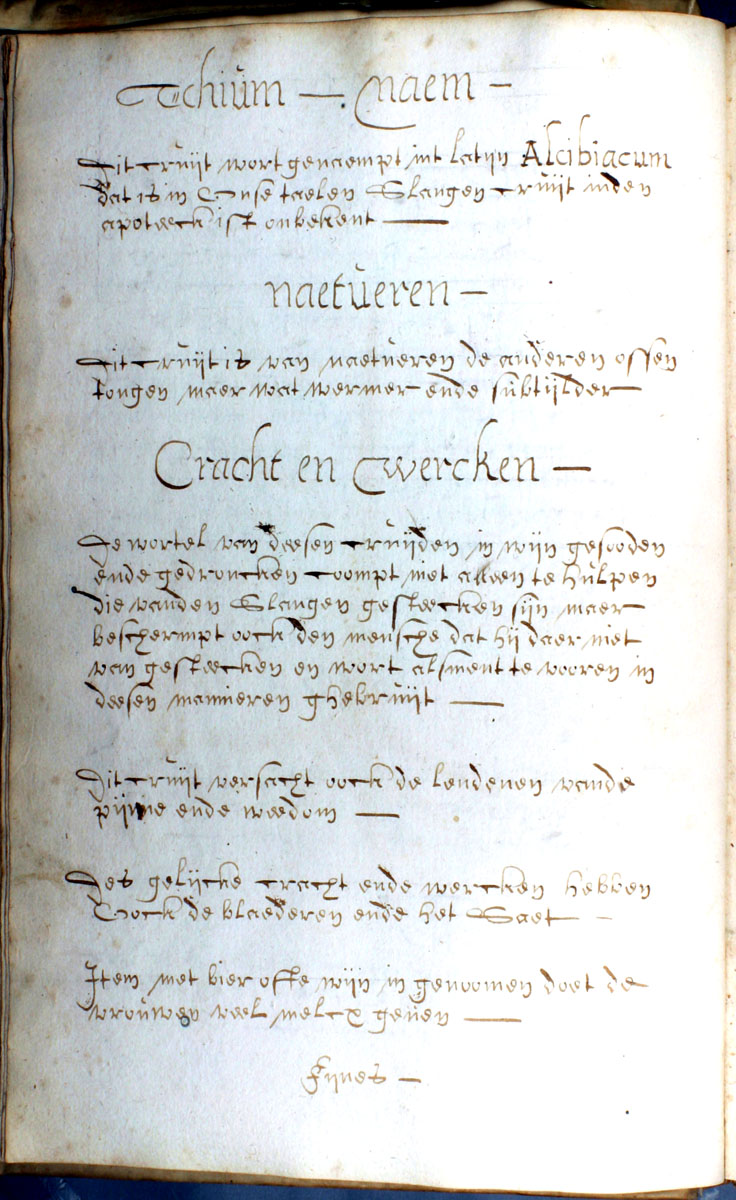 Echium — Naem —
Dit cruijt wort genaempt int latijn Alcibiacum
dat is in Onse taelen Slangen cruijt inden
apoteeck ist onbekent —
naetueren —
Dit cruijt is van naetueren de anderen ossen
tongen maer wat wermer ende subtijlder
Cracht en Wercken —
De wortel van deesen cruijden in wijn gesooden
ende gedroncken coompt niet alleen te hulpen
die vanden Slangen gesteecken sijn maer
beschermpt oock den mensche dat hij daer niet
van gesteecken en wort alsment te vooren in
deesen mannieren ghebruijt —
Dit cruijt versacht oock de lendenen vande
pijnne ende weedom —
Des gelijcke cracht ende wercken hebben
Oock de blaederen ende het Saet —
Item met bier offe wijn in genoomen doet de
vrouwen veel melcx geuen —
Fijnes —